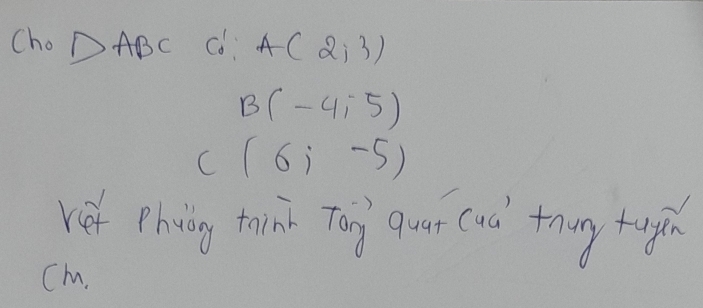 Cho △ABC có: A( 2; 3)
B( -4; 5)
C ( 6; -5)
Viết phương trình Tổng quát của trung tuyến
CM.